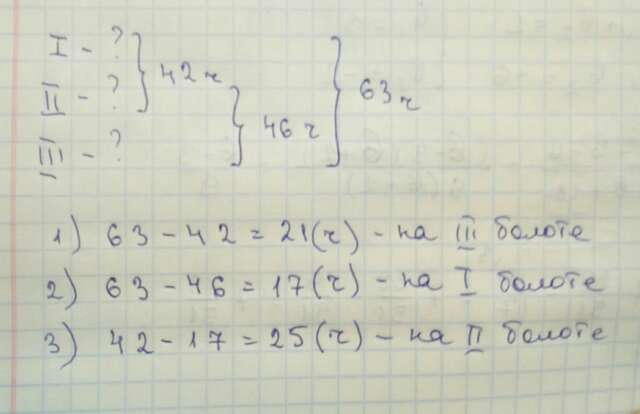 I - ? } 42 ч
II - ? } 46 ч } 63 ч
III - ?
1) 63 - 42 = 21 (ч) - на III болоте
2) 63 - 46 = 17 (ч) - на I болоте
3) 42 - 17 = 25 (ч) - на II болоте